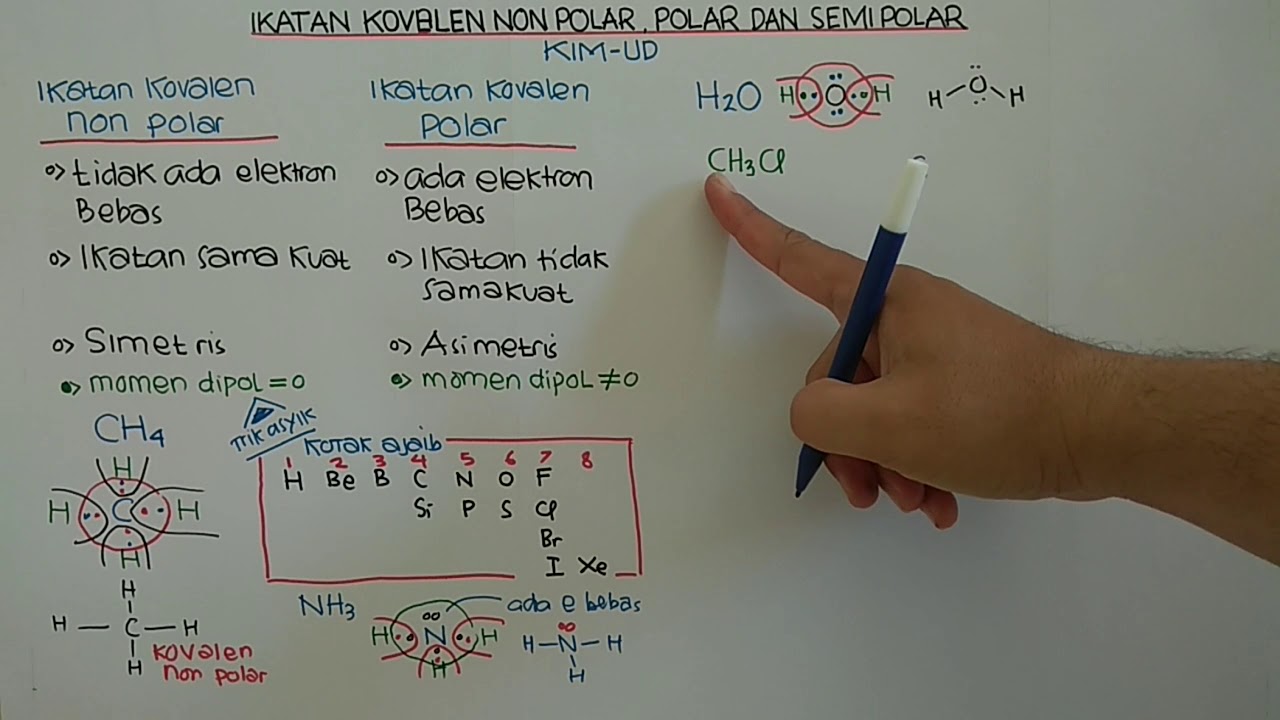 IKATAN KOVALEN NON POLAR, POLAR DAN SEMIPOLAR
KIM-UD
Ikatan Kovalen
non polar
o> tidak ada elektron
Bebas
o> Ikatan sama kuat
o> Simetris
o> momen dipol = 0
CH4
H
H C H
H
H
H — C — H
H
Kovalen
non polar
Ikatan Kovalen
Polar
o> ada elektron
Bebas
o> Ikatan tidak
sama kuat
o> Asimetris
o> momen dipol ≠ 0
Trik asyik
Kotak ajaib
1 2 3 4 5 6 7 8
H Be B C N O F
Si P S Cl
Br
I Xe
NH3
H N H
H
ada e bebas
H—N—H
H
H2O H O H
H O H
CH3Cl